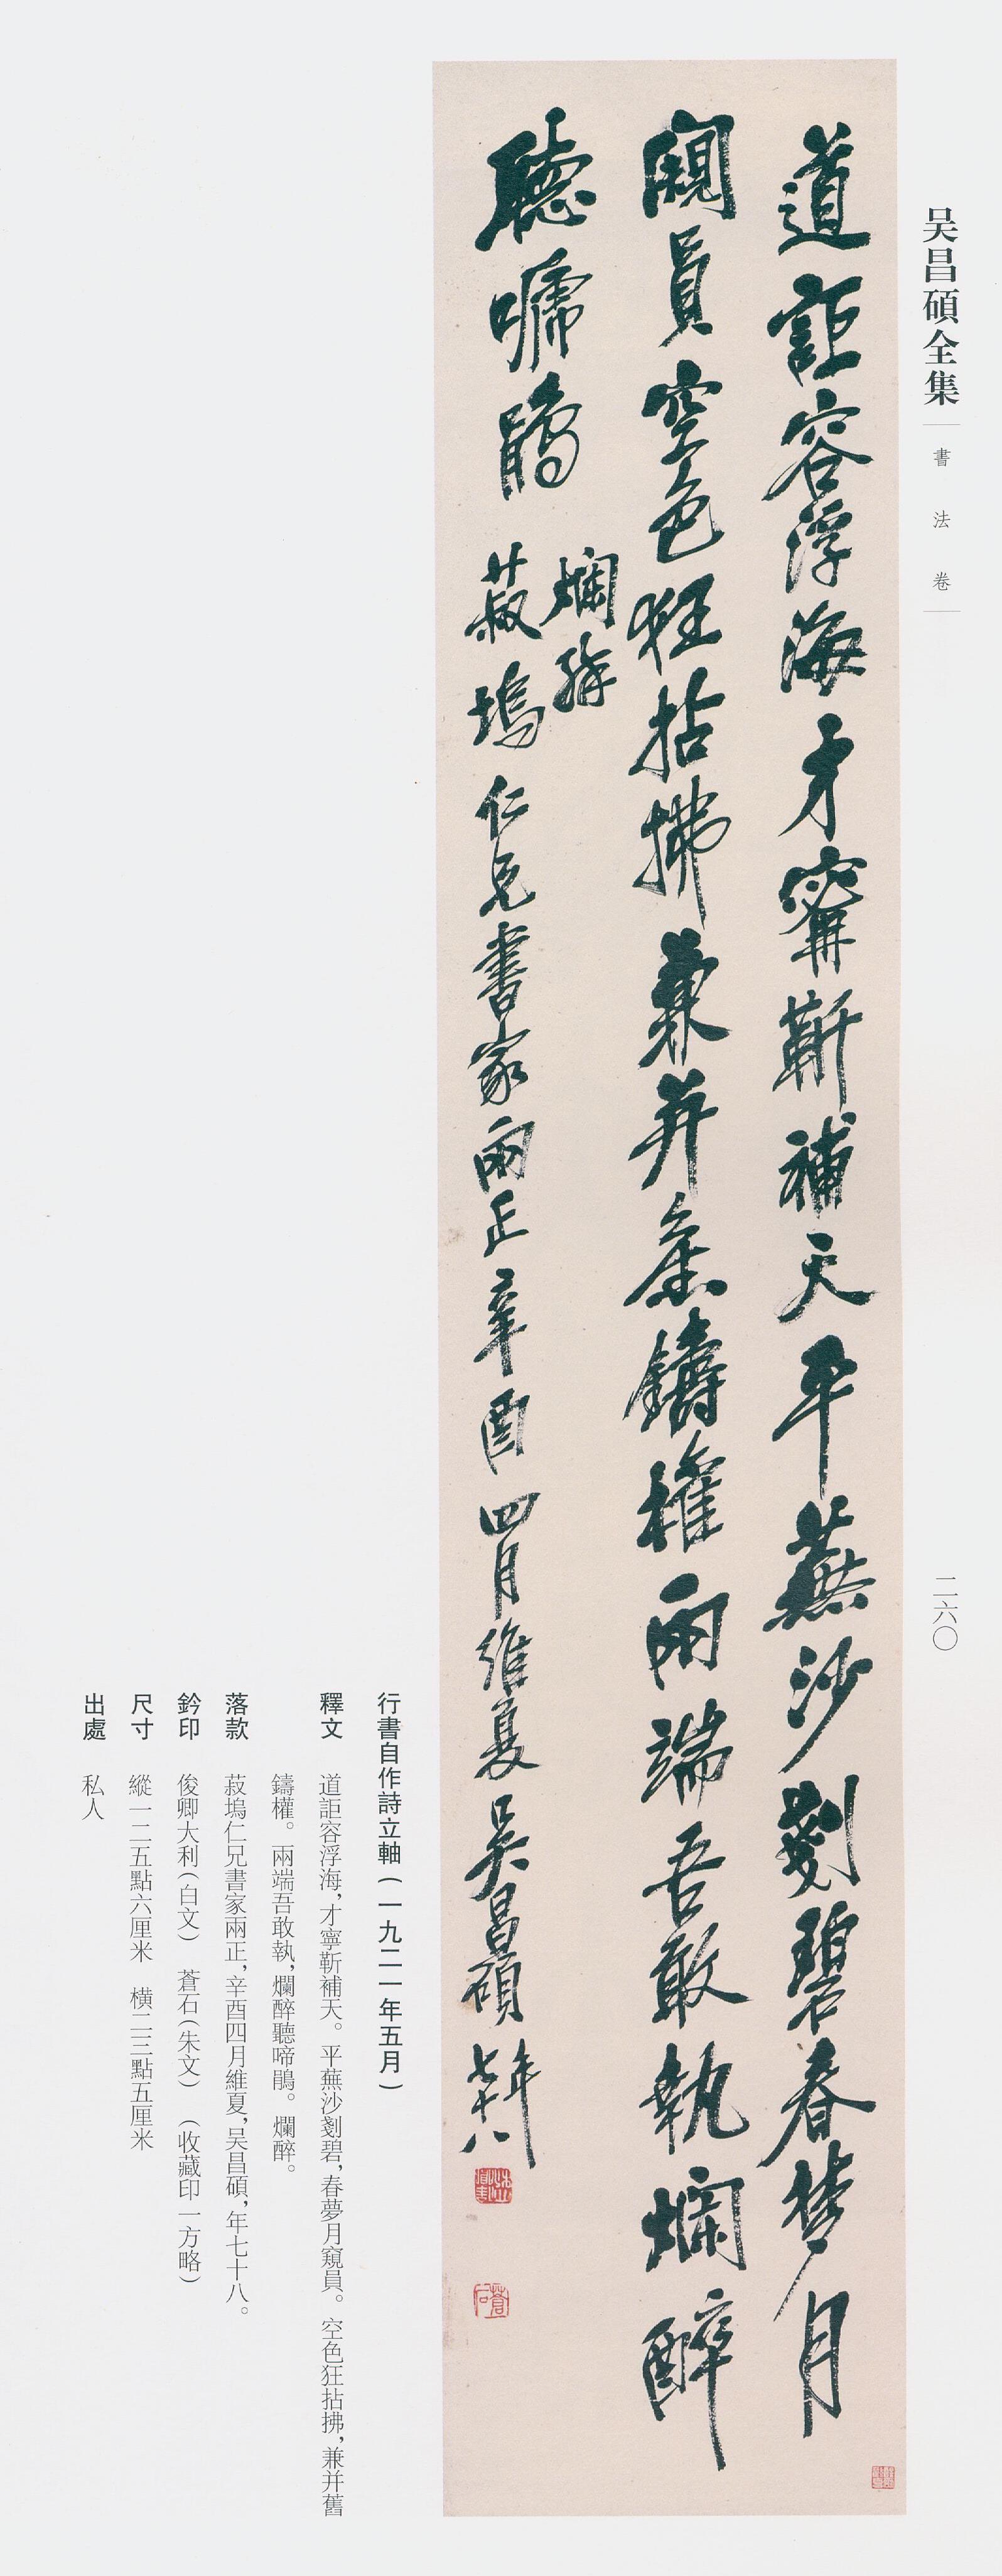 吴昌碩全集
書法卷
二六〇
道詎容浮海才寧靳補天平蕪沙剗碧春夢月
闚員空色狂拈拂兼并舊鑄權兩端吾敢執爛醉
聽嗁鵑
爛醉
菽塢仁兄書家兩正辛酉四月維夏吳昌碩年七十八
蒼石
行書自作詩立軸（一九二一年五月）
釋文 道詎容浮海，才寧靳補天。平蕪沙剗碧，春夢月窺員。空色狂拈拂，兼并舊
鑄權。兩端吾敢執，爛醉聽啼鵑。爛醉。
落款 菽塢仁兄書家兩正，辛酉四月維夏，吴昌碩，年七十八。
鈐印 俊卿大利（白文） 蒼石（朱文） （收藏印一方略）
尺寸 縱一二五點六厘米 橫二三點五厘米
出處 私人